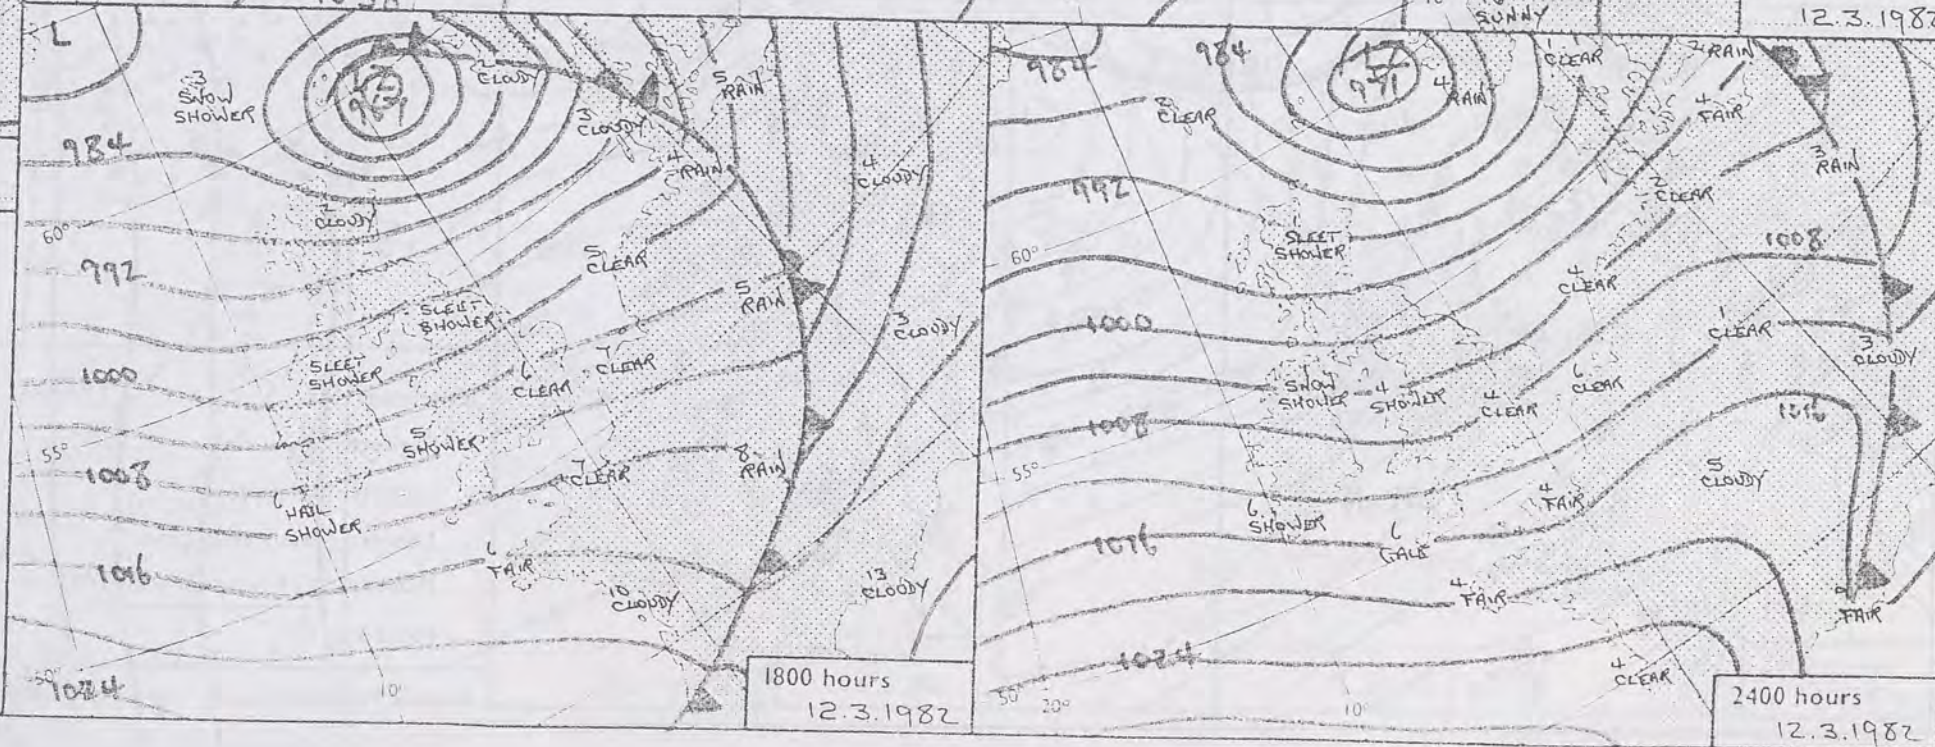 SUNNY
12.3.1982
L
3
SNOW
SHOWER
2
CLOUDY
5
RAIN
3
CLOUDY
984
4
RAIN
4
CLOUDY
CLOUDY
60°
992
5
CLEAR
SLEET
SHOWER
5
RAIN
3
CLOUDY
1000
SLEET
SHOWER
6
CLEAR
7
CLEAR
55°
5
SHOWER
1008
7
CLEAR
8
RAIN
6
HAIL
SHOWER
1016
6
FAIR
10
CLOUDY
13
CLOUDY
50°
1024
10°
1800 hours
12.3.1982
984
984
971
4
RAIN
1
CLEAR
2
RAIN
2
CLEAR
4
FAIR
3
RAIN
992
2
CLEAR
1
SLEET
SHOWER
1008
60°
4
CLEAR
1000
1
CLEAR
3
CLOUDY
SNOW
SHOWER
4
SHOWER
6
CLEAR
4
CLEAR
1008
1016
55°
5
CLOUDY
6
SHOWER
4
FAIR
1016
6
GALE
4
FAIR
FAIR
1024
4
CLEAR
50°
20°
10°
2400 hours
12.3.1982